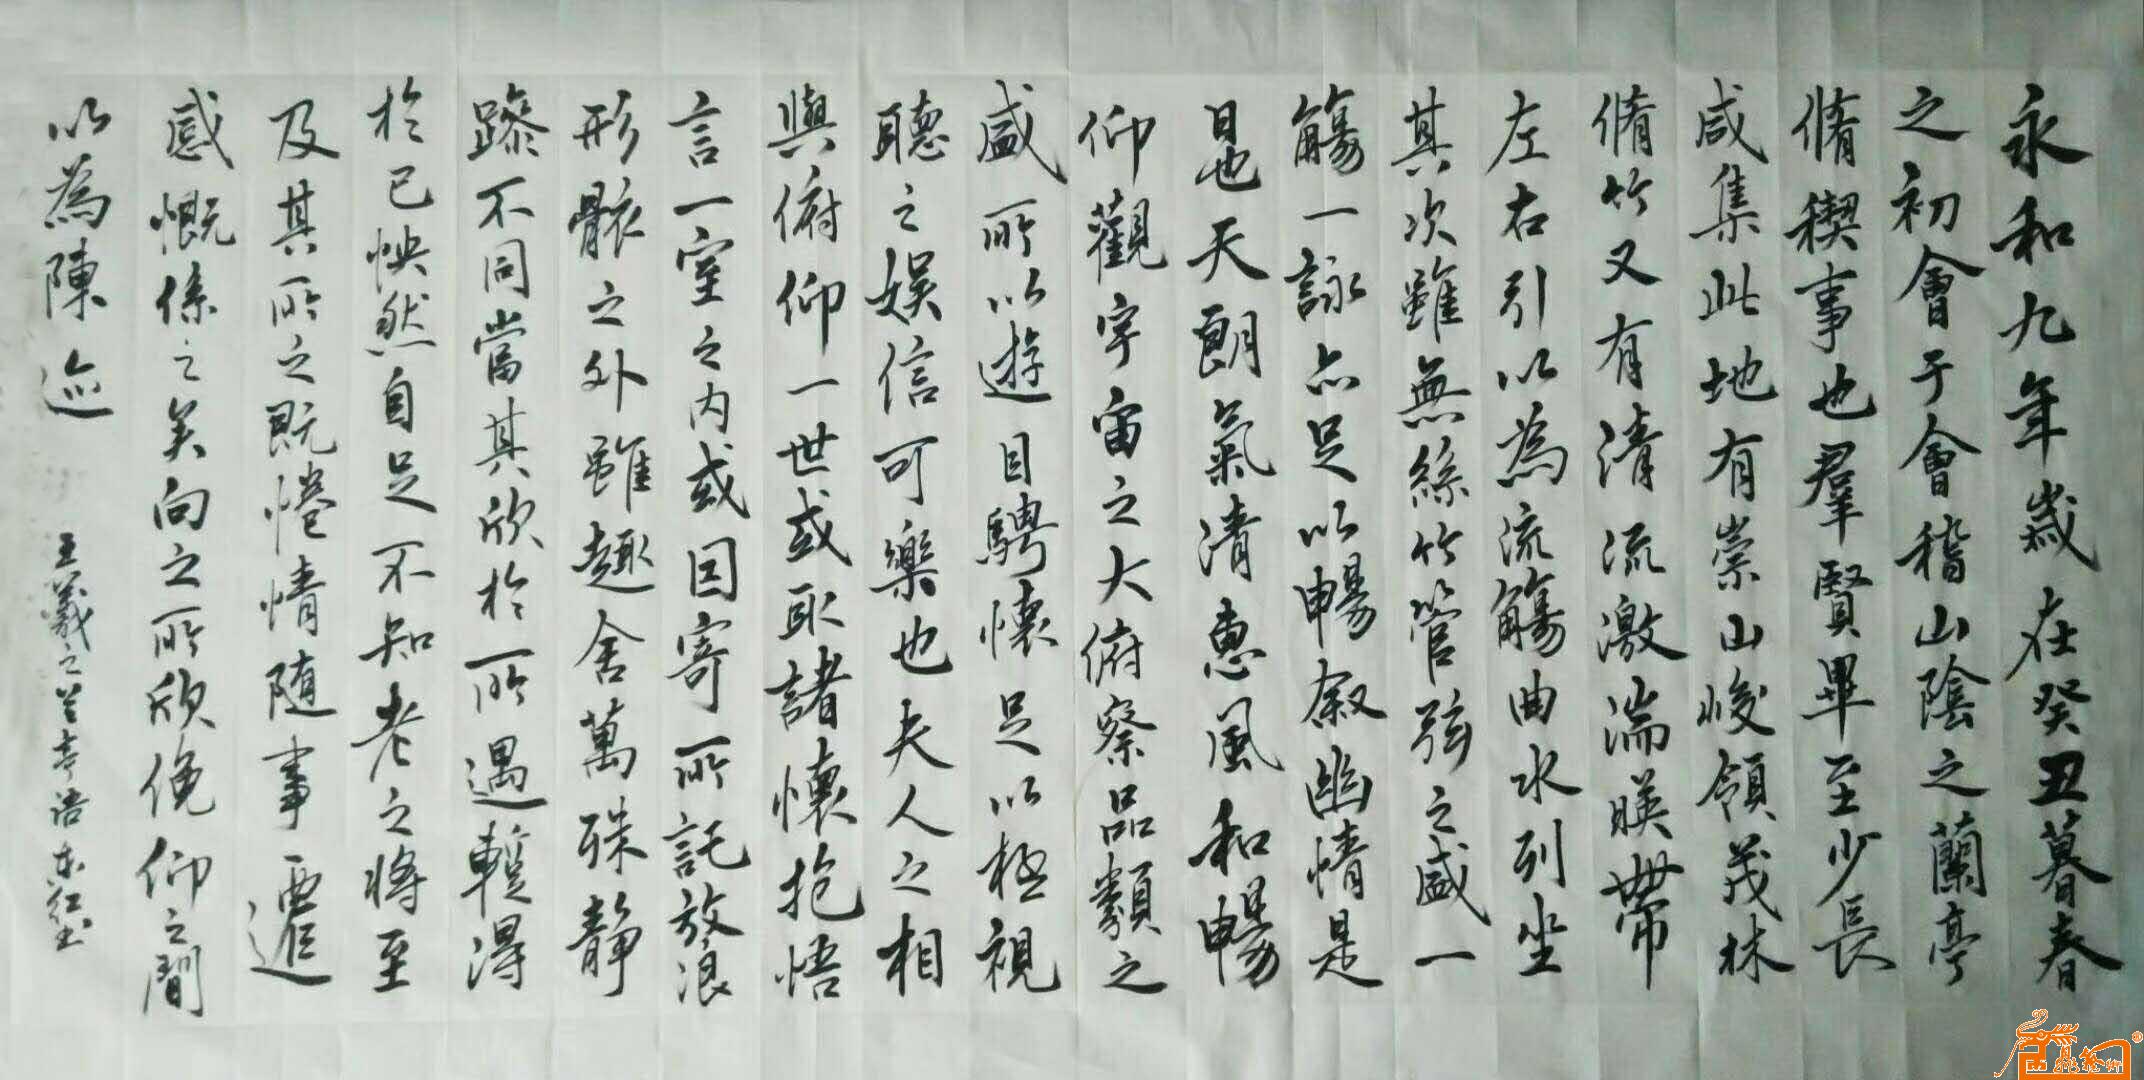 永和九年歲在癸丑暮春
之初會于會稽山陰之蘭亭
脩稧事也羣賢畢至少長
咸集此地有崇山峻領茂林
脩竹又有清流激湍暎帶
左右引以為流觴曲水列坐
其次雖無絲竹管弦之盛一
觴一詠亦足以暢叙幽情是
日也天朗氣清惠風和暢
仰觀宇宙之大俯察品類之
盛所以遊目騁懷足以極視
聽之娱信可樂也夫人之相
與俯仰一世或取諸懷抱悟
言一室之内或因寄所託放浪
形骸之外雖趣舍萬殊静
躁不同當其欣於所遇蹔得
於己怏然自足不知老之將至
及其所之既惓情随事遷
感慨係之矣向之所欣俛仰之間
以為陳迹
王羲之蘭亭語